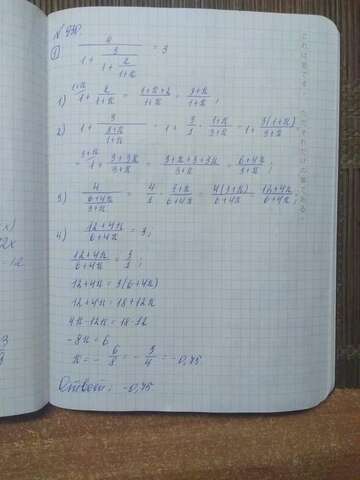 N 930.
1) 4/(1 + 3/(1 + 2/(1+x))) = 3
1) 1+x/1 + 2/(1+x) = (1+x+2)/(1+x) = (3+x)/(1+x);
2) 1 + 3/((3+x)/(1+x)) = 1 + 3/1 · (1+x)/(3+x) = 1 + 3(1+x)/(3+x) =
= 3+x/1 + (3+3x)/(3+x) = (3+x+3+3x)/(3+x) = (6+4x)/(3+x);
3) 4/((6+4x)/(3+x)) = 4/1 · (3+x)/(6+4x) = 4(3+x)/(6+4x) = (12+4x)/(6+4x);
4) (12+4x)/(6+4x) = 3;
(12+4x)/(6+4x) = 3/1;
12+4x = 3(6+4x)
12+4x = 18+12x
4x-12x = 18-12
-8x = 6
x = - 6/8 = - 3/4 = -0,75
Ответ: -0,75